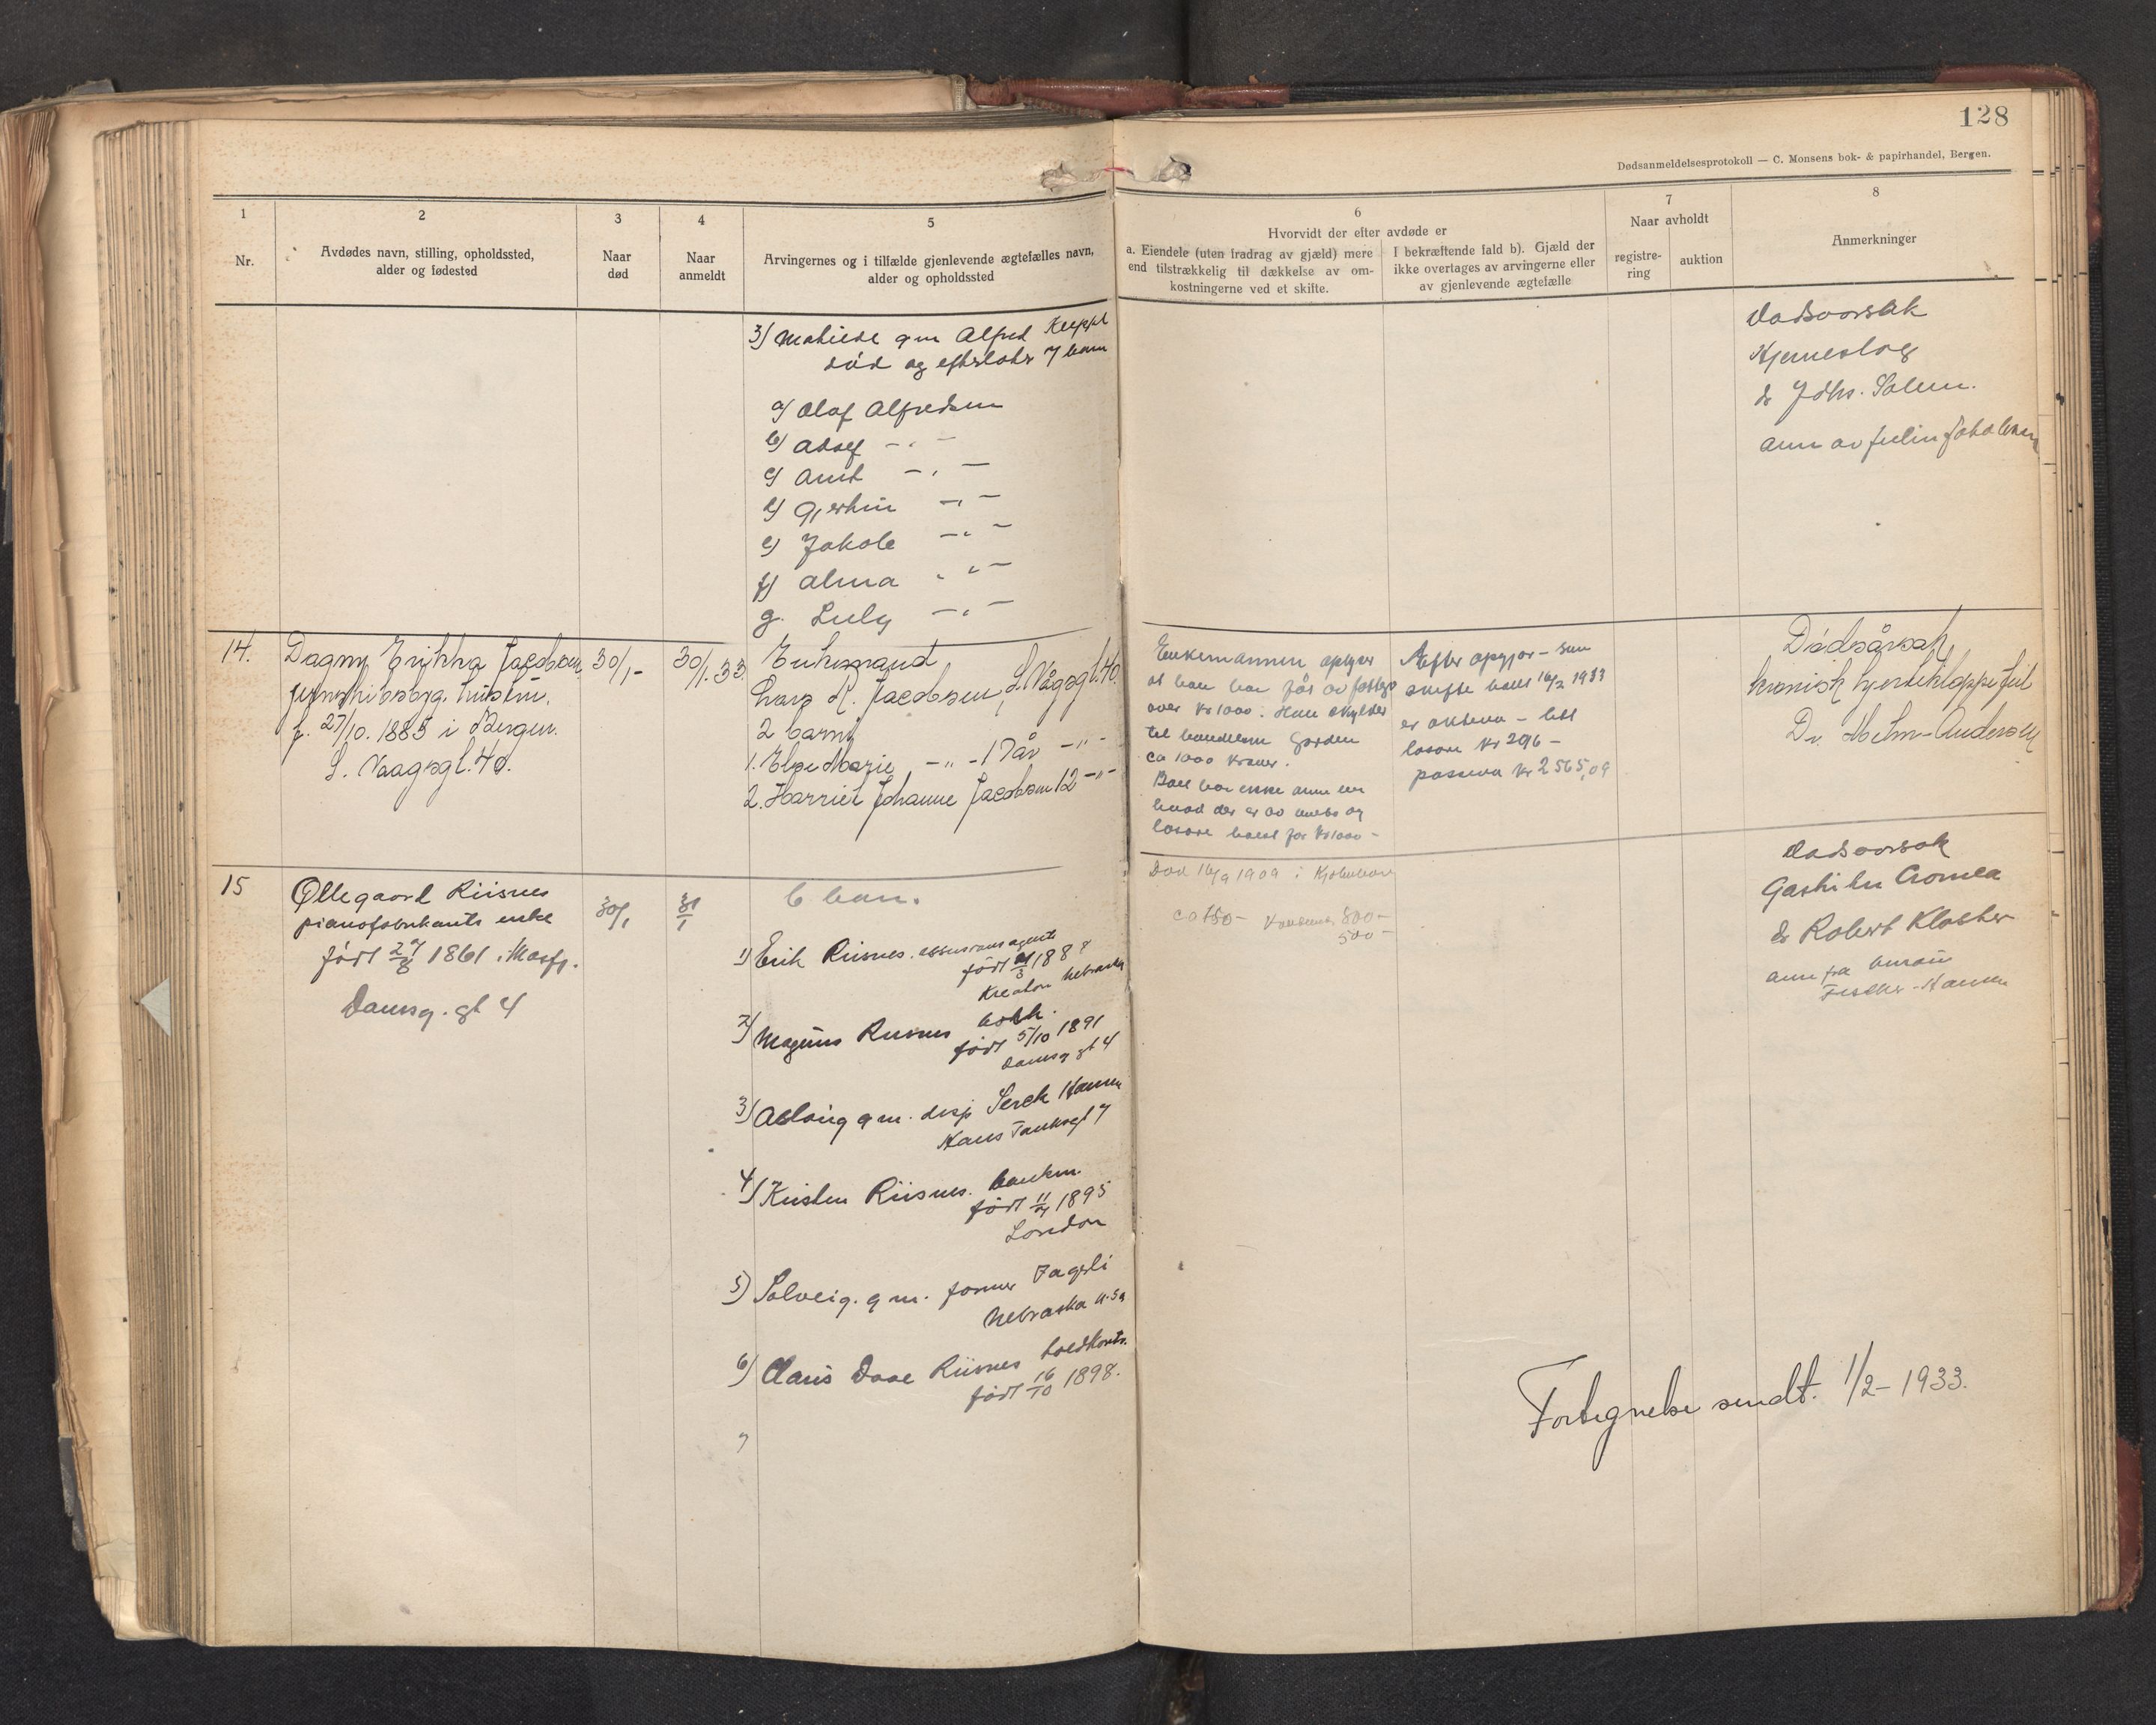 128
Dødsanmeldelsesprotokoll — C. Monsens bok- & papirhandel, Bergen.
1
Nr.
2
Avdødes navn, stilling, opholdssted,
alder og fødested
3
Naar
død
4
Naar
anmeldt
5
Arvingernes og i tilfælde gjenlevende ægtefælles navn,
alder og opholdssted
6
Hvorvidt der efter avdøde er
a. Eiendele (uten fradrag av gjæld) mere
end tilstrækkelig til dækkelse av om-
kostningerne ved et skifte.
I bekræftende fald b). Gjæld der
ikke overtages av arvingerne eller
av gjenlevende ægtefælle
7
Naar avholdt
registre-
ring
auktion
8
Anmerkninger
3) Mathilde gm Alfred
død og efterlater 7 barn
a) Olaf Alfredsen
b) Adolf -"-
c) Arnt -"-
d) Gjerhin -"-
e) Jakob -"-
f) Alma -"-
g. Lully -"-
dødsaarsak
Hjerneslag
dr Johs. Solem.
anm av
14.
Dagny Erikka Jacobsen
hustru.
f. 27/10. 1885 i Bergen.
L. Vaagsgt. 40.
30/1 -
30/1. 33.
Enkemand
Lars K. Jacobsen, L. Vågsgt. 40.
2 barn
1. Else Marie -"- 17 år -"-
2. Harriet Johanne Jacobsen 12 -"-
Enkemannen oplyser
at han har fåt av
over Kr 1000. Han skylder
til handlende Gorden
ca 1000 kroner.
Boet har ikke annet enn
hvad der er av innbo og
løsøre boet for Kr 1000 -
Efter opgjør - som
skifte holdt 16/2 1933
er aktiva - lett
løsøre Kr 206 -
passiva Kr 2565,09
Dødsårsak
kronisk hjerteklappefeil
Dr. Holm-Andersen
15
Øllegaard Riisnes
pianofabrikants enke
født 27/8 1861 i Masfj.
Damsg. gt 4
30/1
31/1
6 barn.
1) Erik Riisnes. assuranseagent
født 1888
Nebraska
2) Magnus Riisnes bokh.
født 5/10 1891
Damsg gt 4
3) Aslaug gm. disp Serck Hansen
Hans Tanksgt 7
4) Kristen Riisnes. bankm.
født 11/4 1895
London
5) Solveig. gm. farmer Fagerli
Nebraska U.S.A
6) Claus Daae Riisnes
født 16/10 1898.
7
Død 16/9 1909 i Kjøbenhavn
ca 150 - 800 -
500 -
dødsaarsak
dr Robert Kloster
anm fra
Fischer-Hansen
Fortegnelse sendt. 1/2 - 1933.